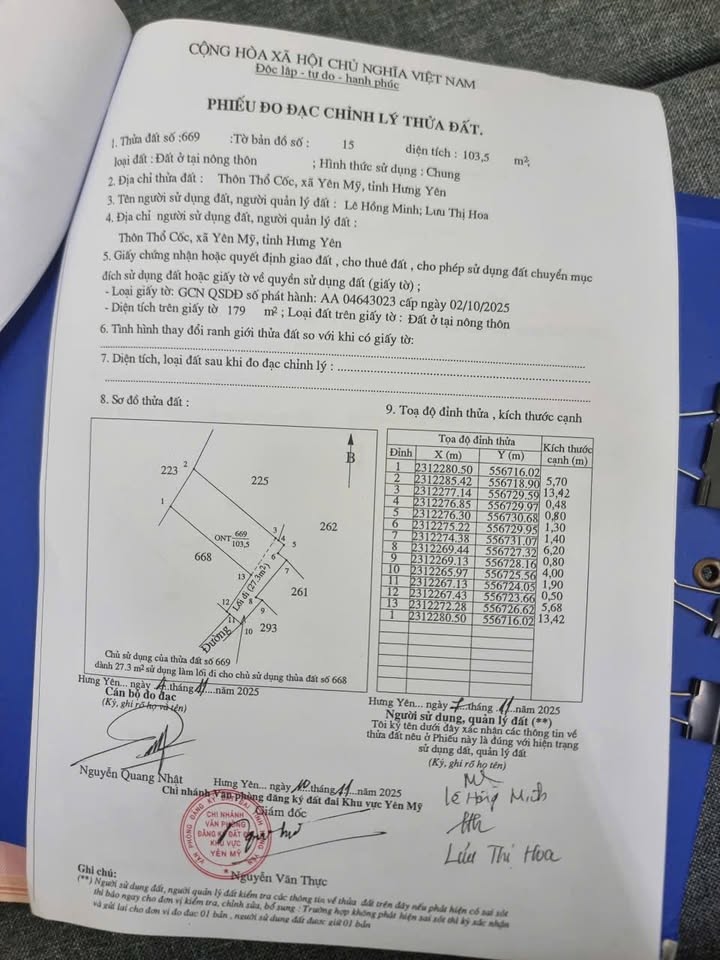 CỘNG HÒA XÃ HỘI CHỦ NGHĨA VIỆT NAM
Độc lập - tự do - hạnh phúc
PHIẾU ĐO ĐẠC CHỈNH LÝ THỬA ĐẤT.
1. Thửa đất số :669 :Tờ bản đồ số : 15 diện tích : 103,5 m²;
loại đất : Đất ở tại nông thôn ; Hình thức sử dụng : Chung
2. Địa chỉ thửa đất : Thôn Thổ Cốc, xã Yên Mỹ, tỉnh Hưng Yên
3. Tên người sử dụng đất, người quản lý đất : Lê Hồng Minh; Lưu Thị Hoa
4. Địa chỉ người sử dụng đất, người quản lý đất :
Thôn Thổ Cốc, xã Yên Mỹ, tỉnh Hưng Yên
5. Giấy chứng nhận hoặc quyết định giao đất , cho thuê đất , cho phép sử dụng đất chuyển mục
đích sử dụng đất hoặc giấy tờ về quyền sử dụng đất (giấy tờ) ;
- Loại giấy tờ: GCN QSDĐ số phát hành: AA 04643023 cấp ngày 02/10/2025
- Diện tích trên giấy tờ 179 m² ; Loại đất trên giấy tờ : Đất ở tại nông thôn
6. Tình hình thay đổi ranh giới thửa đất so với khi có giấy tờ:
7. Diện tích, loại đất sau khi đo đạc chỉnh lý :
8. Sơ đồ thửa đất :
223
2
225
B
1
262
3
4
5
ONT 669/103,5
668
6
7
13
Lối đi (27.3m²)
261
12
8
9
11
10
293
Đường
Chủ sử dụng của thửa đất số 669
dành 27.3 m² sử dụng làm lối đi cho chủ sử dụng thửa đất số 668
9. Toạ độ đỉnh thửa , kích thước cạnh
Tọa độ đỉnh thửa Kích thước cạnh (m)
Đỉnh X (m) Y (m)
1 2312280.50 556716.02
5,70
2 2312285.42 556718.90
13,42
3 2312277.14 556729.59
0,48
4 2312276.85 556729.97
0,80
5 2312276.30 556730.68
1,30
6 2312275.22 556729.95
1,40
7 2312274.38 556731.07
6,20
8 2312269.44 556727.32
0,80
9 2312269.13 556728.16
4,00
10 2312265.97 556725.56
1,90
11 2312267.13 556724.05
0,50
12 2312267.43 556723.66
5,68
13 2312272.28 556726.62
13,42
1 2312280.50 556716.02
Hưng Yên... ngày 4 tháng 11 năm 2025
Cán bộ đo đạc
(Ký, ghi rõ họ và tên)
Nguyễn Quang Nhật
Hưng Yên... ngày 7 tháng 11 năm 2025
Người sử dụng, quản lý đất (**)
Tôi ký tên dưới đây xác nhận các thông tin về
thửa đất nêu ở Phiếu này là đúng với hiện trạng
sử dụng đất, quản lý đất
(Ký, ghi rõ họ tên)
Lê Hồng Minh
Lưu Thị Hoa
Hưng Yên... ngày 10 tháng 11 năm 2025
Chi nhánh Văn phòng đăng ký đất đai Khu vực Yên Mỹ
Giám đốc
CHI NHÁNH
VĂN PHÒNG
ĐĂNG KÝ ĐẤT ĐAI
KHU VỰC
YÊN MỸ
Nguyễn Văn Thực
Ghi chú:
(**) Người sử dụng đất, người quản lý đất kiểm tra các thông tin về thửa đất trên đây nếu phát hiện có sai sót
thì báo ngay cho đơn vị kiểm tra, chỉnh sửa, bổ sung : Trường hợp không phát hiện sai sót thì ký xác nhận
và gửi lại cho đơn vị đo đạc 01 bản , người sử dụng đất được giữ 01 bản